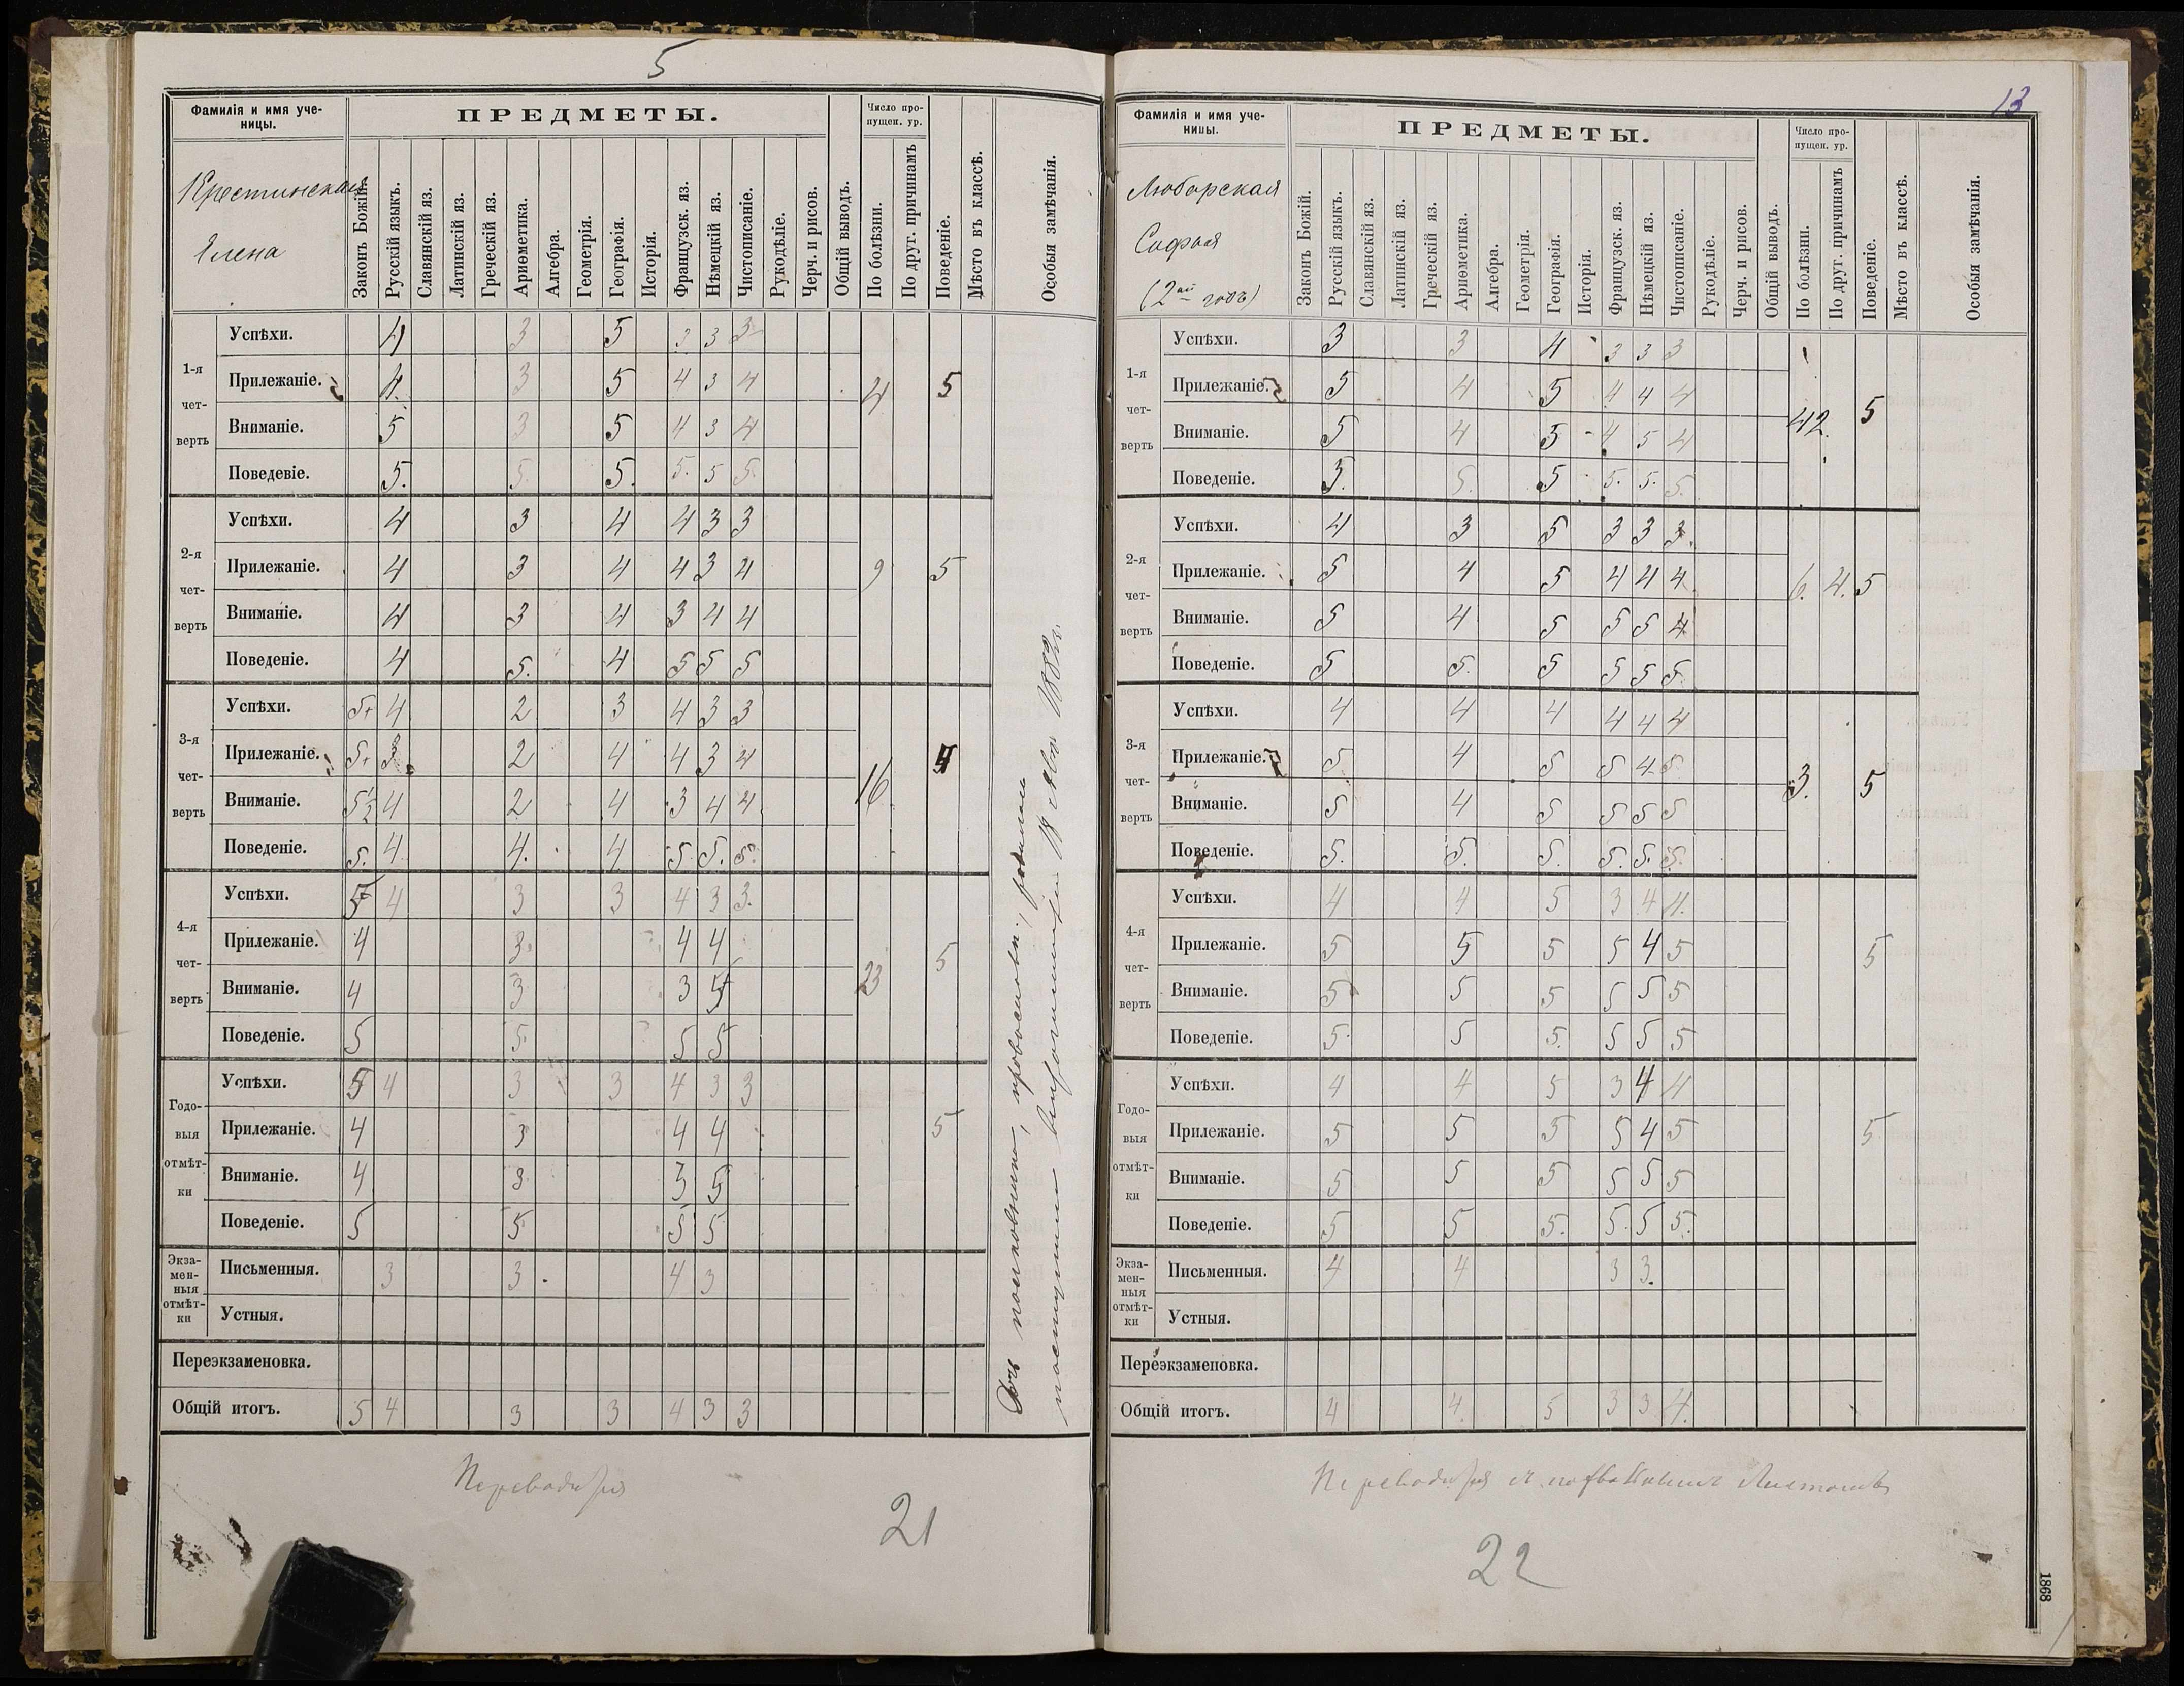 5
Фамилія и имя уче-
ницы.
ПРЕДМЕТЫ.
Число про-
пущен. ур.
Крестинская
Елена
Законъ Божій.
Русскій языкъ.
Славянскій яз.
Латинскій яз.
Греческій яз.
Ариѳметика.
Алгебра.
Геометрія.
Географія.
Исторія.
Французск. яз.
Нѣмецкій яз.
Чистописаніе.
Рукодѣліе.
Черч. и рисов.
Общій выводъ.
По болѣзни.
По друг. причинамъ
Поведеніе.
Мѣсто въ классѣ.
Особыя замѣчанія.
1-я чет-верть
Успѣхи. 4 3 5 3 3 3
Прилежаніе. 4. 3 5 4 3 4 4 5
Вниманіе. 5 3 5 4 3 4
Поведевіе. 5. 5. 5. 5. 5 5.
2-я чет-верть
Успѣхи. 4 3 4 4 3 3
Прилежаніе. 4 3 4 4 3 4 9 5
Вниманіе. 4 3 4 3 4 4
Поведеніе. 4 5. 4 5 5 5
3-я чет-верть
Успѣхи. 5+ 4 2 3 4 3 3
Прилежаніе. 5+ 3 2 4 4 3 4 16
Вниманіе. 4 2 4 3 4 4
Поведеніе. 5. 4 4. 4 5. 5. 5.
4-я чет-верть
Успѣхи. 5 4 3 3 4 3 3.
Прилежаніе. 4 3. 4 4 23 5
Вниманіе. 4 3 3 5
Поведеніе. 5 5 5 5
Годо-выя отмѣт-ки
Успѣхи. 5 4 3 3 4 3 3
Прилежаніе. 4 3 4 4 5
Вниманіе. 4 3 3 5
Поведеніе. 5 5 5 5
Экза-мен-ныя отмѣт-ки
Письменныя. 3 3. 4 3
Устныя.
Переэкзаменовка.
Общій итогъ. 5 4 3 3 4 3 3
Дочь полковника, православн.;
18
Переводится
21
13
Фамилія и имя уче-
ницы.
ПРЕДМЕТЫ.
Число про-
пущен. ур.
Любарская
Софья
(2ой годъ)
Законъ Божій.
Русскій языкъ.
Славянскій яз.
Латинскій яз.
Греческій яз.
Ариѳметика.
Алгебра.
Геометрія.
Географія.
Исторія.
Французск. яз.
Нѣмецкій яз.
Чистописаніе.
Рукодѣліе.
Черч. и рисов.
Общій выводъ.
По болѣзни.
По друг. причинамъ
Поведеніе.
Мѣсто въ классѣ.
Особыя замѣчанія.
1-я чет-верть
Успѣхи. 3 3 4 3 3 3
Прилежаніе. 5 4 5 4 4 4 42. 5
Вниманіе. 5 4 5 4 5 4
Поведеніе. 5. 5. 5 5. 5. 5.
2-я чет-верть
Успѣхи. 4 3 5 3 3 3.
Прилежаніе. 5 4 5 4 4 4 6. 4. 5
Вниманіе. 5 4 5 5 5 4
Поведеніе. 5 5. 5 5 5 5.
3-я чет-верть
Успѣхи. 4 4 4 4 4 4
Прилежаніе. 5 4 5 5 4 5 3. 5
Вниманіе. 5 4 5 5 5 5
Поведеніе. 5. 5. 5. 5. 5. 5.
4-я чет-верть
Успѣхи. 4 4 5 3 4 4.
Прилежаніе. 5 5 5 5 4 5 5
Вниманіе. 5 5 5 5 5 5
Поведеніе. 5. 5 5. 5 5 5
Годо-выя отмѣт-ки
Успѣхи. 4 4 5 3 4 4
Прилежаніе. 5 5 5 5 4 5 5
Вниманіе. 5 5 5 5 5 5
Поведеніе. 5 5 5. 5. 5 5.
Экза-мен-ныя отмѣт-ки
Письменныя. 4 4 3 3.
Устныя.
Переэкзаменовка.
Общій итогъ. 4 4. 5 3 3 4.
Переводится с похвальнымъ листомъ
22
1868